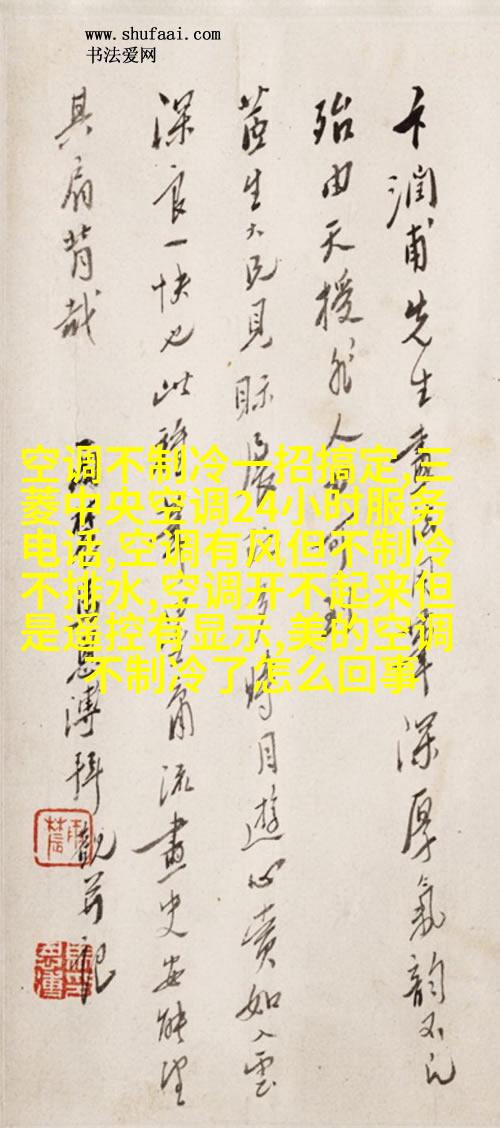 www.shufaai.com
书法爱网
卞潤甫先生畫深厚氣韵不凡
殆由天授非人
生大兄見展時目遊心賞如入雲
深良一快也此流畫史安能望
其肩背哉
觀并記
空调不制冷一招搞定,三
菱中央空调24小时服务
电话,空调有风但不制冷
不排水,空调开不起来但
是遥控有显示,美的空调
不制冷了怎么回事